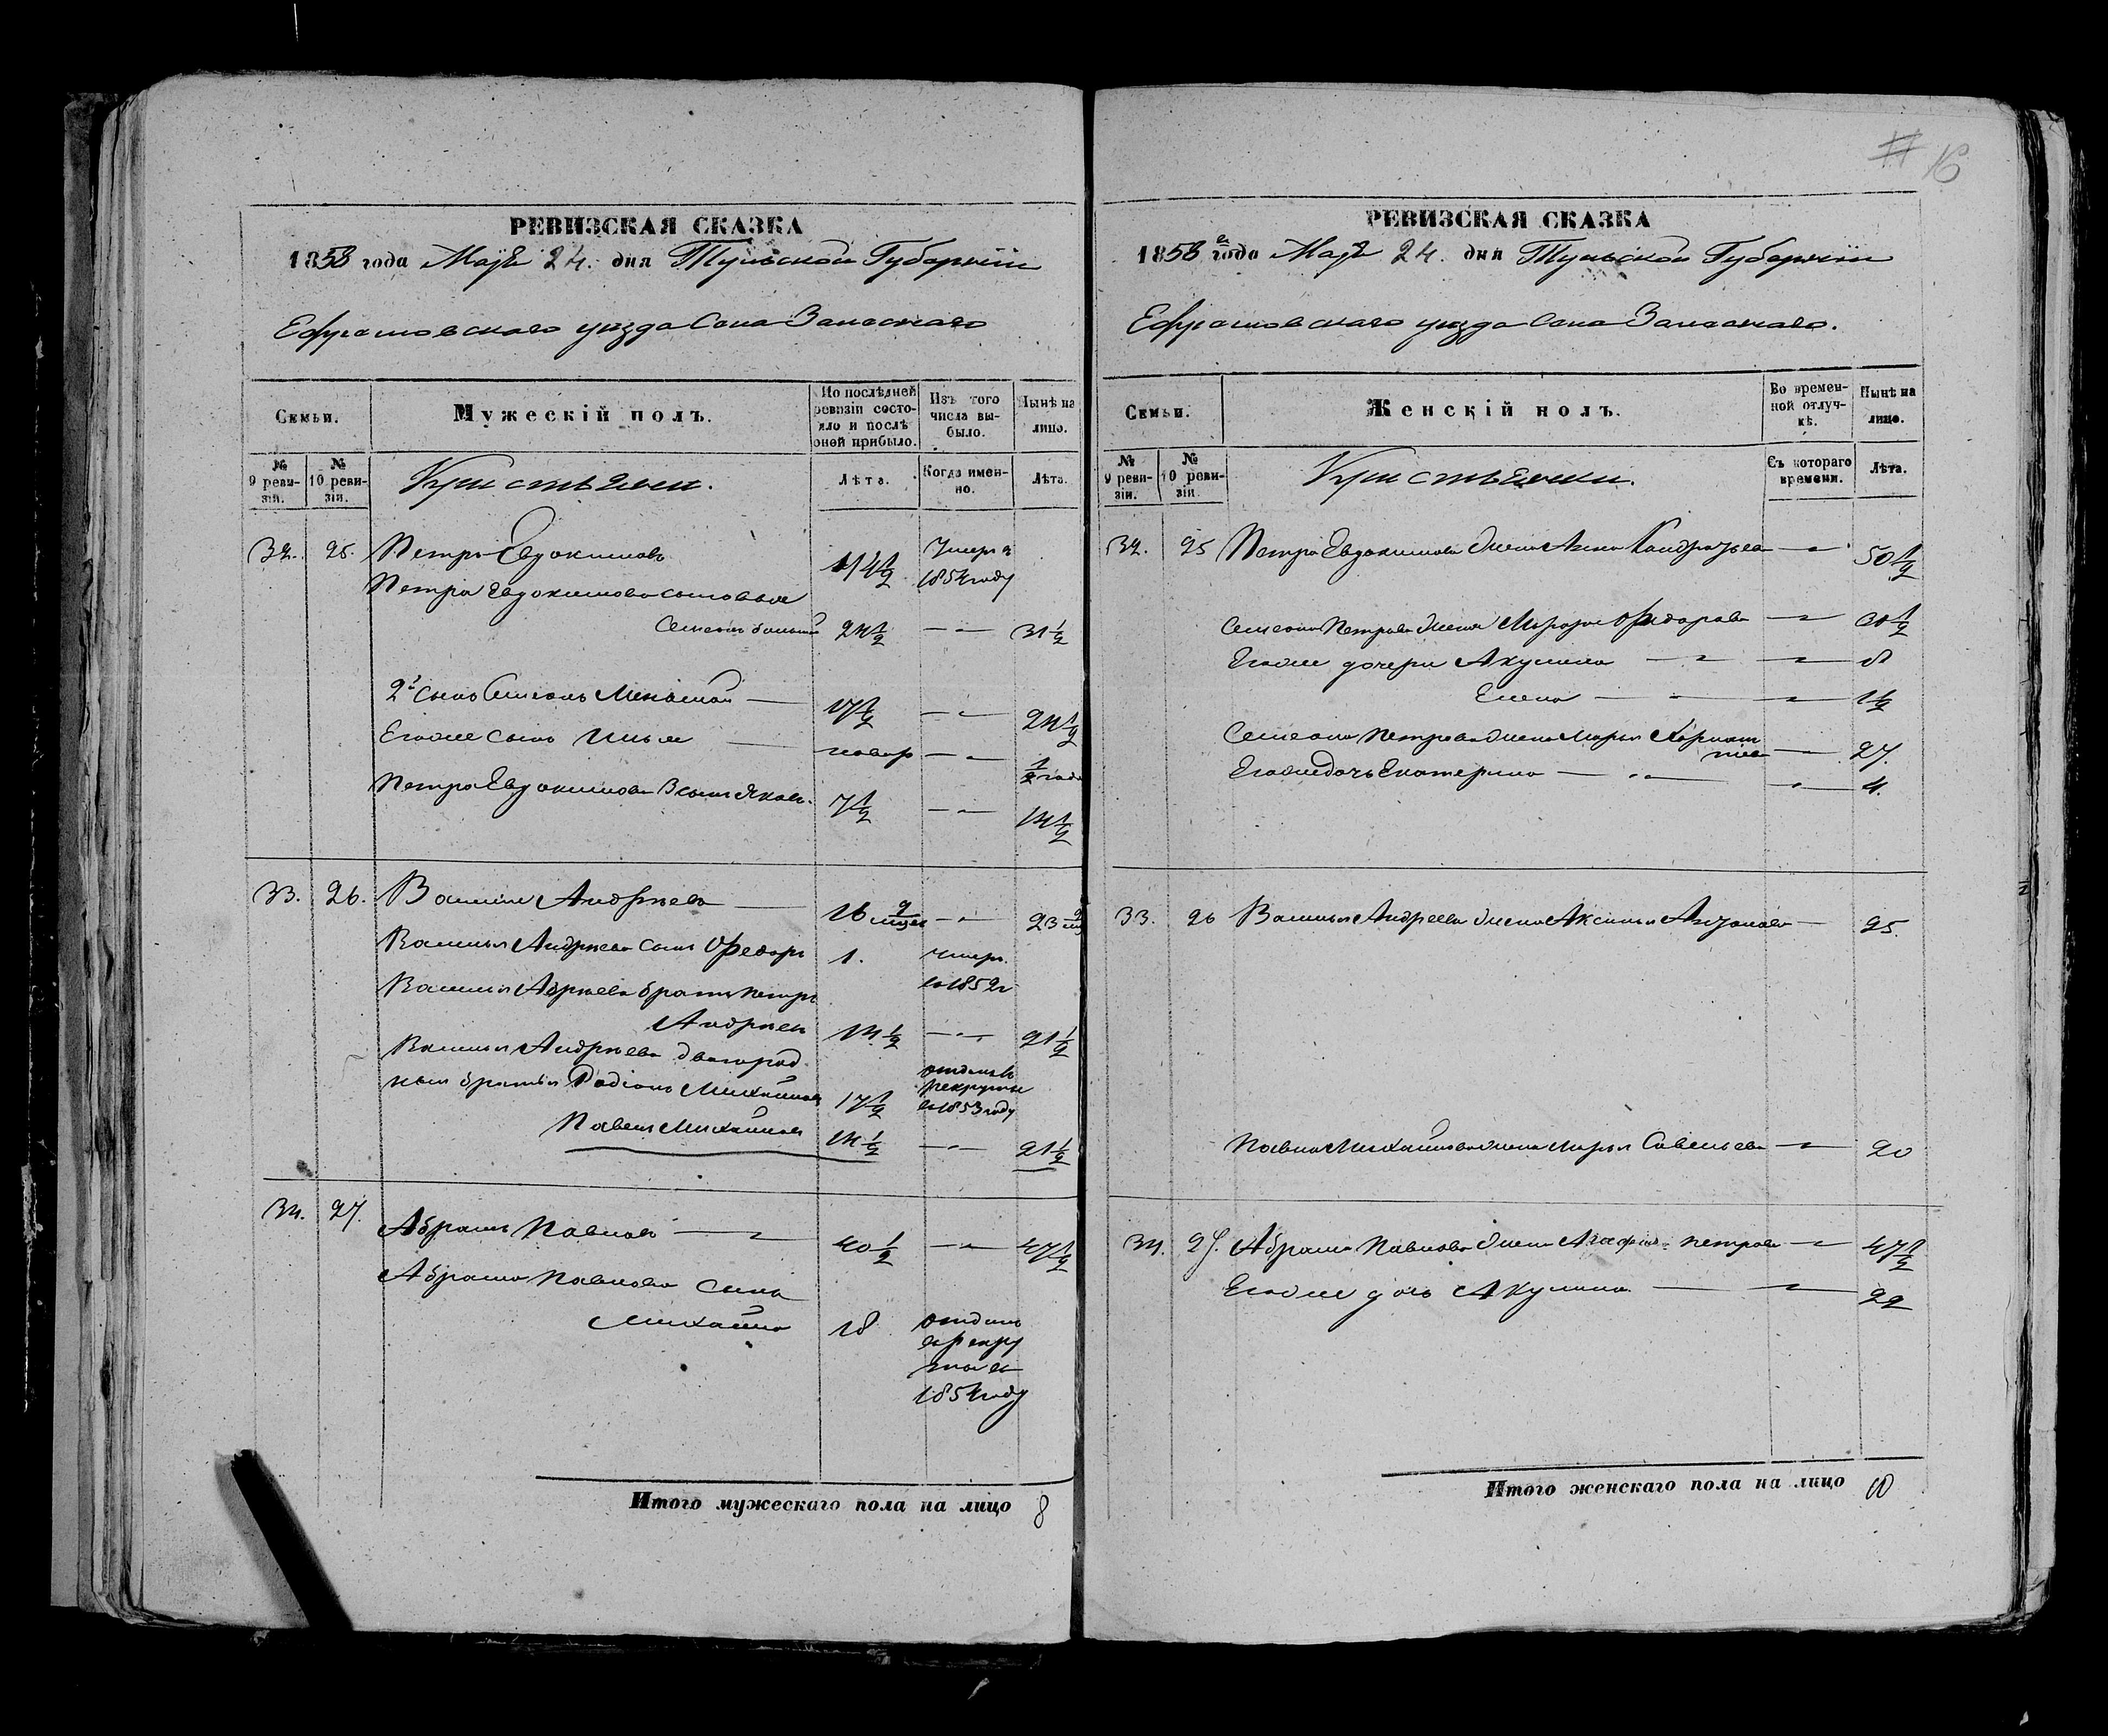 16
РЕВИЗСКАЯ СКАЗКА
1858 года Маія 24. дня Тульской Губерніи
Ефремовскаго уѣзда Села
Семьи.
Мужескій полъ.
По послѣдней ревизіи состояло и послѣ оной прибыло.
Изъ того числа выбыло.
Нынѣ на лицо.
№ 9 ревизіи.
№ 10 ревизіи.
Кристьяни.
Лѣта.
Когда именно.
Лѣта.
32. 25. Петръ Евдокимовъ 44 1/2 Умеръ в 1854 году
Петра Евдокимова сыновья
Семенъ большой 24 1/2 — " — 31 1/2
2й сынъ Семенъ Меньшой — 17 1/2 — " — 24 1/2
Егоже сынъ Илья — новор — " — 1/2 года
Петра Евдокимова 3 сынъ Яковъ. 7 1/2 — " — 14 1/2
33. 26. Василій Андреевъ — 16 — " — 23
Василья Андреева сынъ Федоръ 1. умеръ. въ 1852 г
Василья Адреева братъ Петръ
Андреевъ 14 1/2 — " — 21 1/2
Василья Андреева двоюрод
ныя братья Родіонъ Михайловъ 17 1/2 отданъ въ рекруты въ 1853 году
Павелъ Михайловъ 14 1/2 — " — 21 1/2
34. 27. Абрамъ Павловъ — " 40 1/2 — " — 47 1/2
Абрама Павлова сынъ
Михайла 18 отданъ в рекру ты въ 1854 году
Итого мужескаго пола на лицо 8
РЕВИЗСКАЯ СКАЗКА
1858 года Маія 24. дня Тульской Губерніи
Ефремовскаго уѣзда Села
Семьи.
Женскій полъ.
Во временной отлучкѣ.
Нынѣ на лицо.
№ 9 ревизіи.
№ 10 ревизіи.
Кристьянки.
Съ котораго времени.
Лѣта.
32. 25 Петра Евдокимова жена Анна Кондратьева — " 50 1/2
Семена Петрова жена Марфа Федорова — " 30 1/2
Егоже дочери Акулина — " — " 8
Елена — " — " 1 1/2
Семена Петрова жена Марья — 27.
Егоже дочь Екатерина — " — — " — 4.
33. 26 Василья Андреева жена Аксинья — 25.
Павла Михайлова жена Марья Савельева — " 20
34. 27. Абрама Павлова жена Агафья Петрова — " 47 1/2
Егоже дочь Акулина — — " 22
Итого женскаго пола на лицо 10